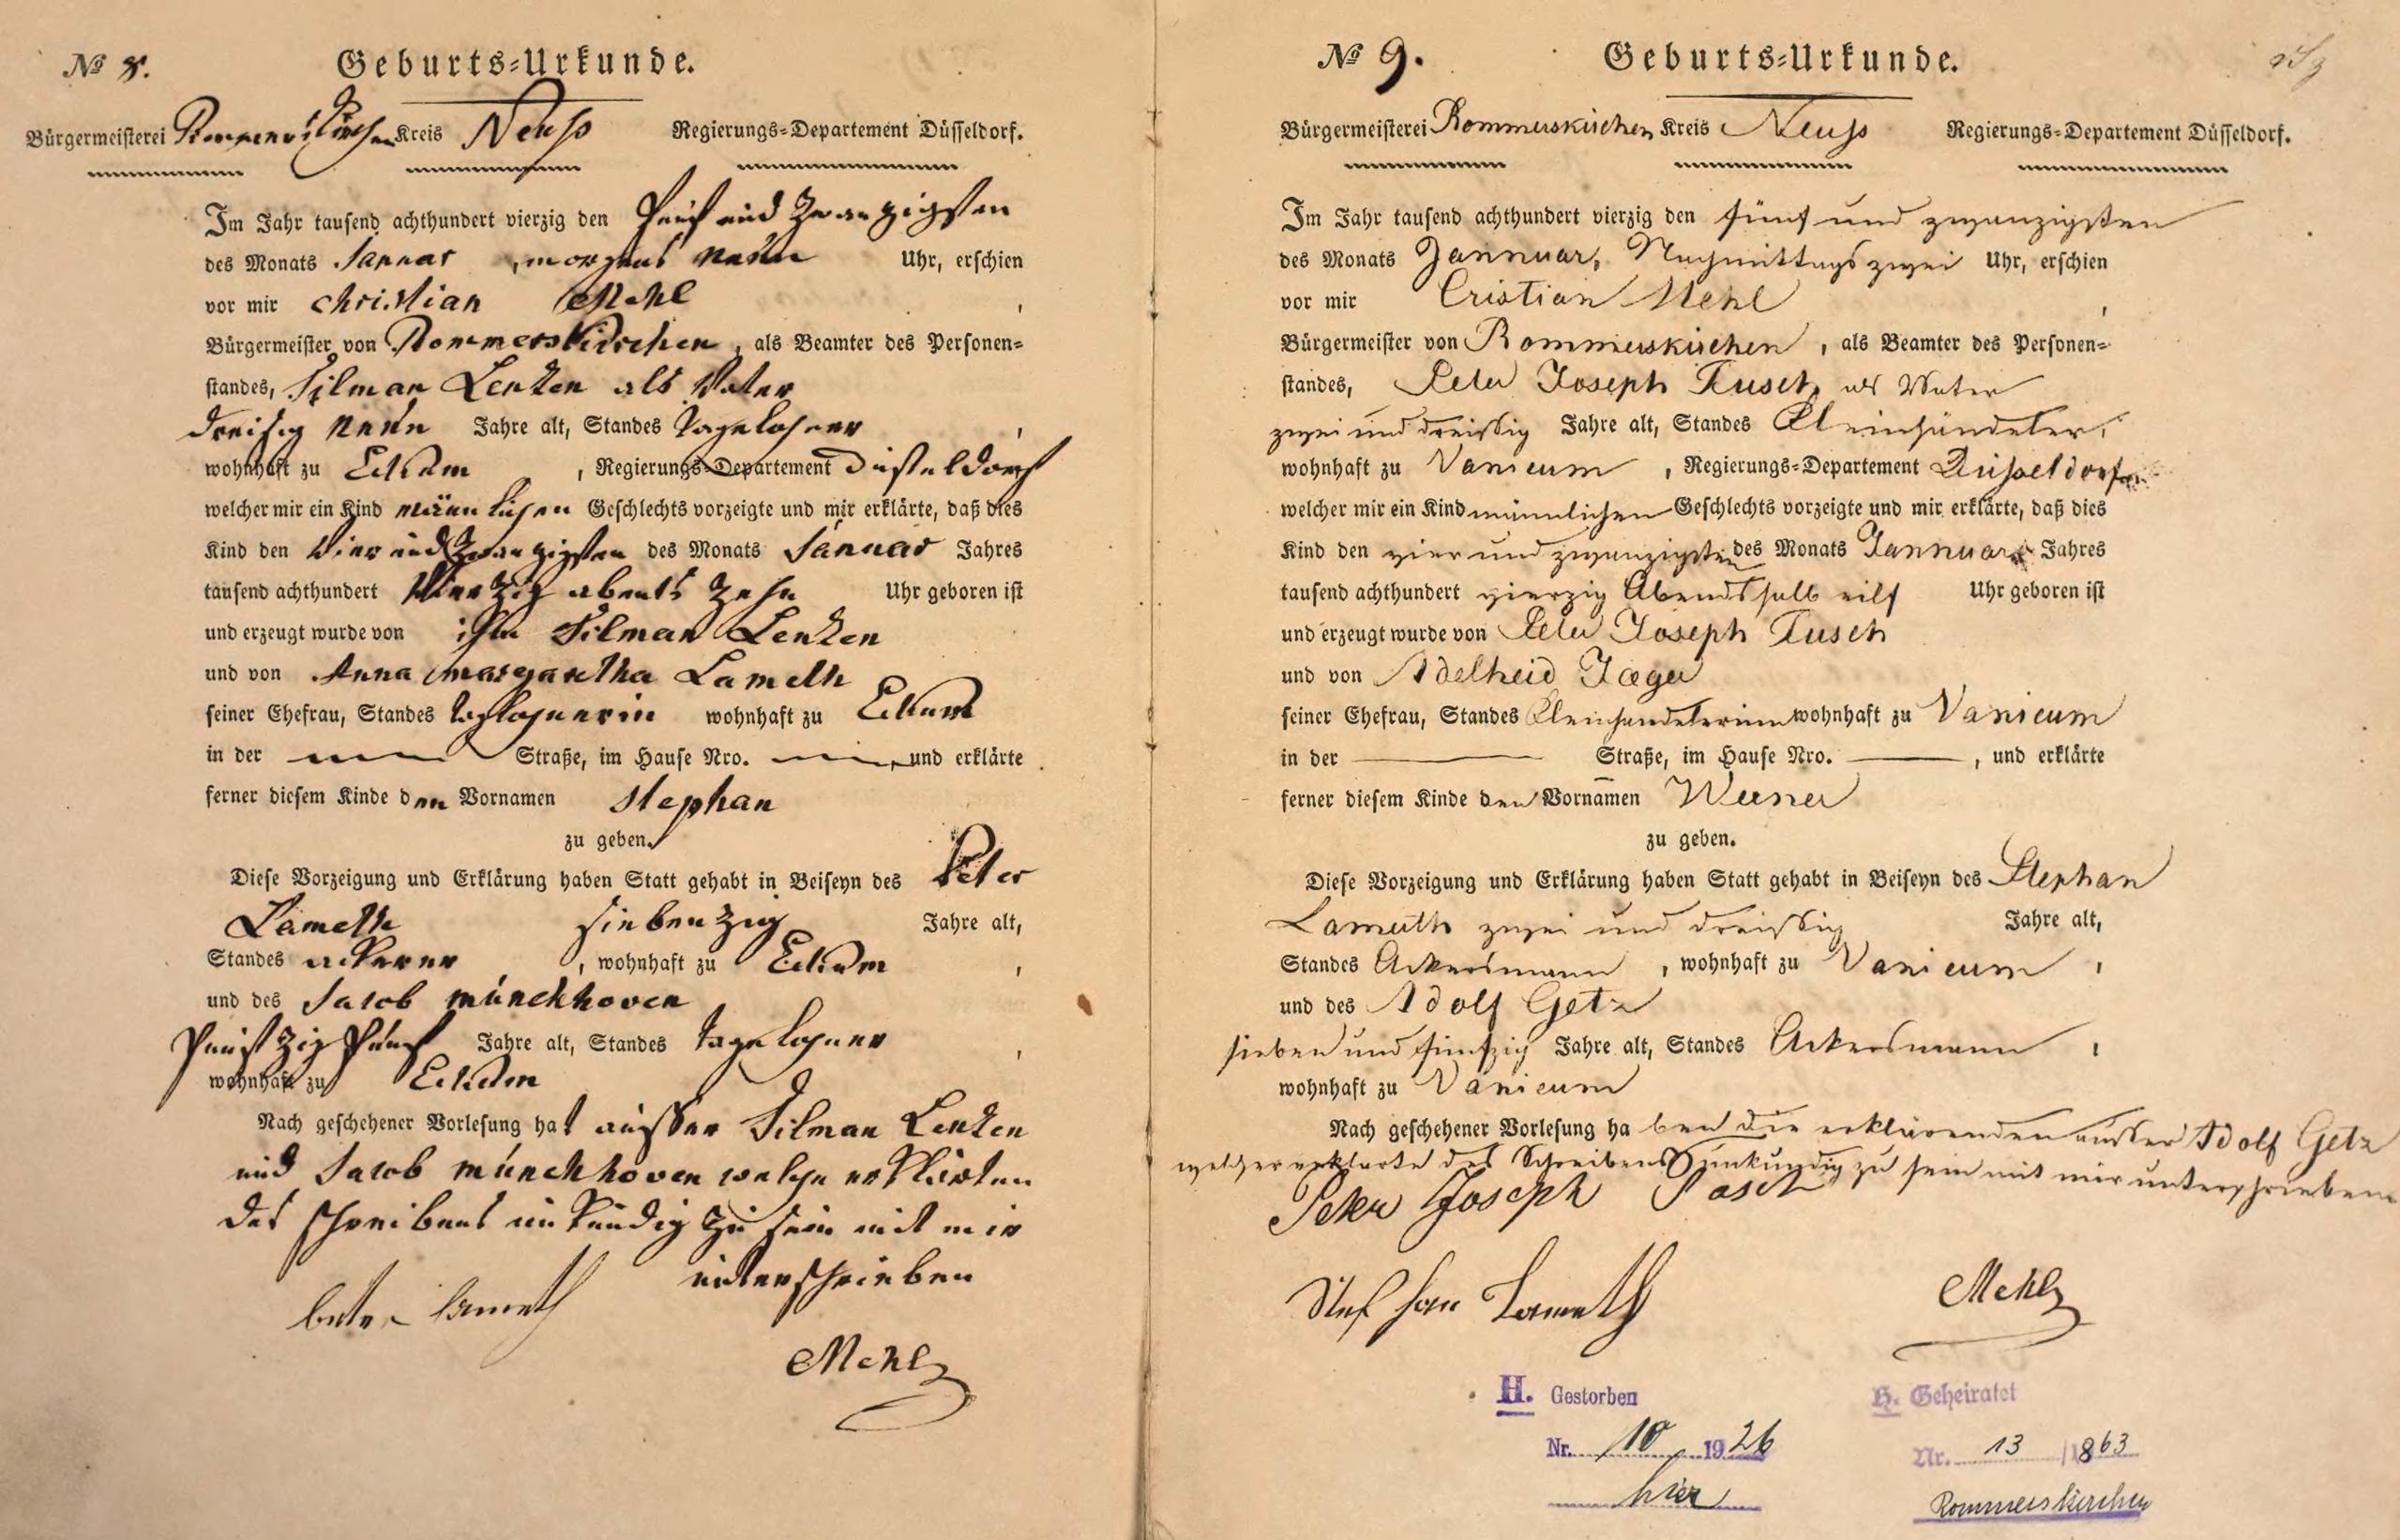 № 8.
Geburts-Urkunde.
Bürgermeisterei Rommerskirchen Kreis Neuss Regierungs-Departement Düsseldorf.
Im Jahr tausend achthundert vierzig den fünf und zwanzigsten
des Monats Januar, morgens neun Uhr, erschien
vor mir Christian Mehl,
Bürgermeister von Rommerskirchen, als Beamter des Personen-
standes, Tilman Lenzen als Vater
dreisig neun Jahre alt, Standes Tagelohner,
wohnhaft zu Eckum, Regierungs-Departement Düsseldorf
welcher mir ein Kind mänlichen Geschlechts vorzeigte und mir erklärte, daß dies
Kind den vier und zwanzigsten des Monats Januar Jahres
tausend achthundert vierzig abents zehn Uhr geboren ist
und erzeugt wurde von ihm Tilman Lenzen
und von Anna margaretha Lameth
seiner Ehefrau, Standes taglohnerin wohnhaft zu Eckum
in der — Straße, im Hause Nro. —, und erklärte
ferner diesem Kinde den Vornamen Stephan
zu geben.
Diese Vorzeigung und Erklärung haben Statt gehabt in Beiseyn des Peter
Lameth siebenzig Jahre alt,
Standes ackerer, wohnhaft zu Eckum,
und des Jacob münckhoven
funfzig fünf Jahre alt, Standes tagelohner,
wohnhaft zu Eckum
Nach geschehener Vorlesung hat ausser Tilman Lenzen
und Jacob münckhoven welche erklärten
des schreibens unkundig zu sein mit mir
unterschrieben
lameth
Mehl
№ 9.
Geburts-Urkunde.
Bürgermeisterei Rommerskirchen Kreis Neuss Regierungs-Departement Düsseldorf.
Im Jahr tausend achthundert vierzig den fünf und zwanzigsten
des Monats Jannuar, Nachmittags zwei Uhr, erschien
vor mir Cristian Mehl,
Bürgermeister von Rommerskirchen, als Beamter des Personen-
standes, Peter Joseph Pusch als Vater
zwei und dreissig Jahre alt, Standes Kleinhändeler,
wohnhaft zu Vanicum, Regierungs-Departement Düsseldorf
welcher mir ein Kind männlichen Geschlechts vorzeigte und mir erklärte, daß dies
Kind den vier und zwanzigsten des Monats Jannuar Jahres
tausend achthundert vierzig Abends halb eilf Uhr geboren ist
und erzeugt wurde von Peter Joseph Pusch
und von Adelheid Jæger
seiner Ehefrau, Standes Kleinhandelerinn wohnhaft zu Vanicum
in der — Straße, im Hause Nro. —, und erklärte
ferner diesem Kinde den Vornamen Werner
zu geben.
Diese Vorzeigung und Erklärung haben Statt gehabt in Beiseyn des Stephan
Lameth zwei und dreissig Jahre alt,
Standes Ackersmann, wohnhaft zu Vanicum,
und des Adolf Getz
sieben und fünfzig Jahre alt, Standes Ackersmann,
wohnhaft zu Vanicum
Nach geschehener Vorlesung haben die erklärenden ausser Adolf Getz
welcher erklärte des Schreibens unkundig zu sein mit mir unterschrieben
Peter Joseph Pasch
Steffan Lameth
Mehl
H. Gestorben
Nr. 10 1926
hier
H. Geheiratet
Nr. 13 / 1863
Rommerskirchen